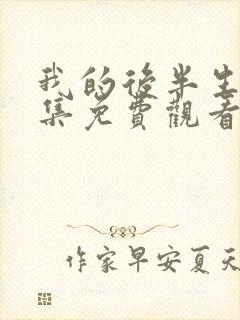 我的後半生
集免費觀看
作家早安夏天